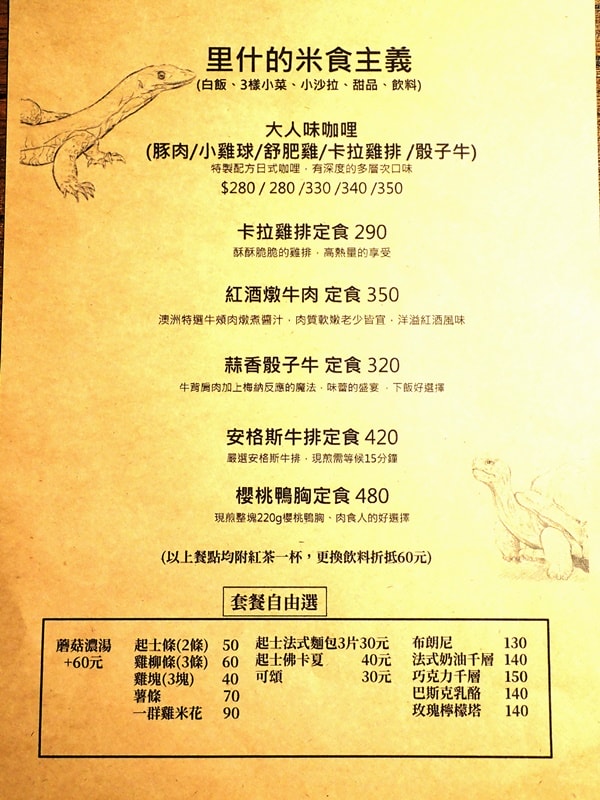 里什的米食主義
(白飯、3樣小菜、小沙拉、甜品、飲料)
大人味咖哩
(豚肉/小雞球/舒肥雞/卡拉雞排 /骰子牛)
特製配方日式咖哩，有深度的多層次口味
$280 / 280 /330 /340 /350
卡拉雞排定食 290
酥酥脆脆的雞排，高熱量的享受
紅酒燉牛肉 定食 350
澳洲特選牛頰肉燉煮醬汁，肉質軟嫩老少皆宜，洋溢紅酒風味
蒜香骰子牛 定食 320
牛背肩肉加上梅納反應的魔法，味蕾的盛宴，下飯好選擇
安格斯牛排定食 420
嚴選安格斯牛排，現煎需等候15分鐘
櫻桃鴨胸定食 480
現煎整塊220g櫻桃鴨胸，肉食人的好選擇
(以上餐點均附紅茶一杯，更換飲料折抵60元)
套餐自由選
蘑菇濃湯
+60元
起士條(2條) 50
雞柳條(3條) 60
雞塊(3塊) 40
薯條 70
一群雞米花 90
起士法式麵包3片30元
起士佛卡夏 40元
可頌 30元
布朗尼 130
法式奶油千層 140
巧克力千層 150
巴斯克乳酪 140
玫瑰檸檬塔 140